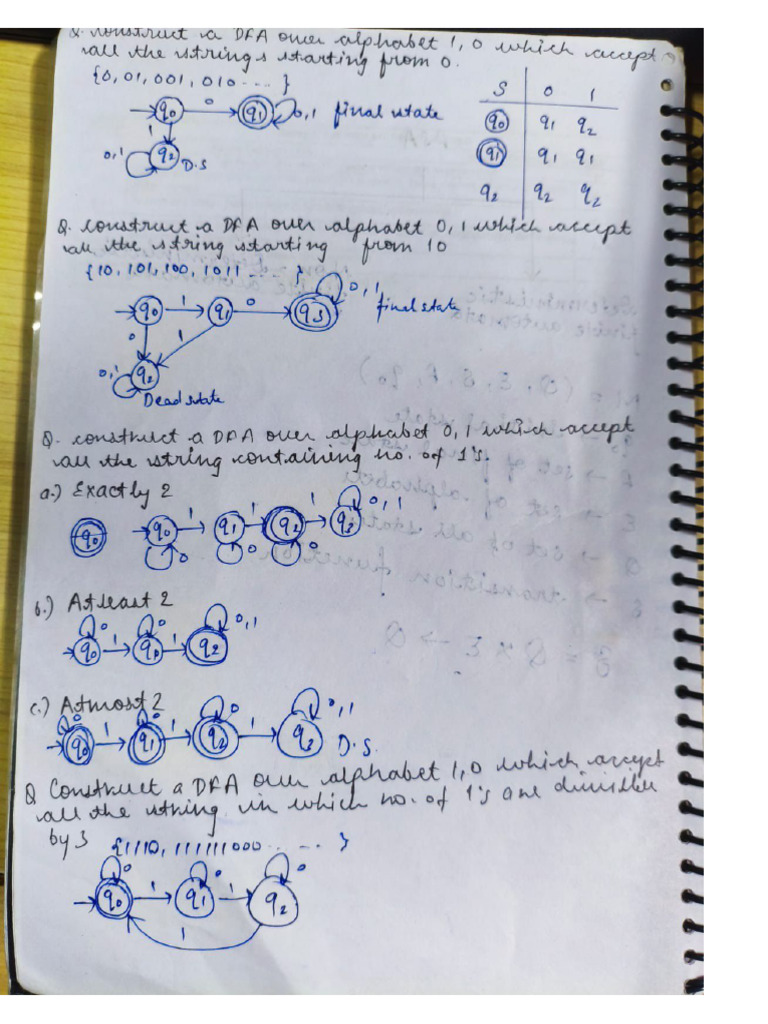 Q. construct a DFA over alphabet 1, 0 which accept
all the strings starting from 0.
{0, 01, 001, 010 .... }
q0 0 q1 0, 1 final state
1
0, 1 q2 D.S
S 0 1
q0 q1 q2
q1 q1 q1
q2 q2 q2
Q. construct a DFA over alphabet 0, 1 which accept
all the string starting from 10
{10, 101, 100, 1011 ... }
q0 1 q1 0 q3 0, 1 final state
0 1
0, 1 q2
Dead state
Q. construct a DFA over alphabet 0, 1 which accept
all the string containing no. of 1's.
a.) Exactly 2
q0 q0 1 q1 1 q2 1 q3 0, 1
0 0 0
b.) Atleast 2
q0 0 1 q1 0 1 q2 0, 1
c.) Atmost 2
q0 0 1 q1 0 1 q2 0 1 q3 0, 1
D.S.
Q Construct a DFA over alphabet 1, 0 which accept
all the string in which no. of 1's are divisible
by 3 {1110, 111111000 ..... }
q0 0 1 q1 0 1 q2 0
1